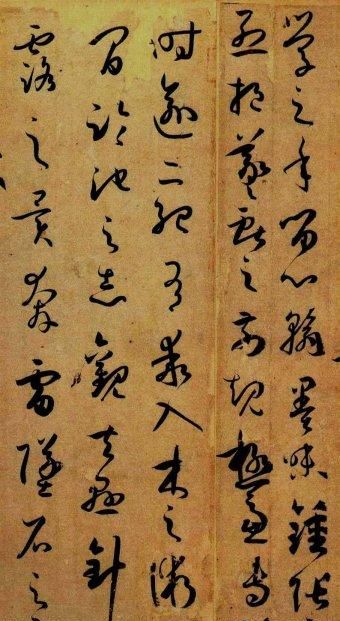 學之年留心翰墨味鍾張
烈挹羲獻之前規極慮專
時逾二紀有乖入木之術
間臨池之志觀夫懸針
露之異奔雷墜石之